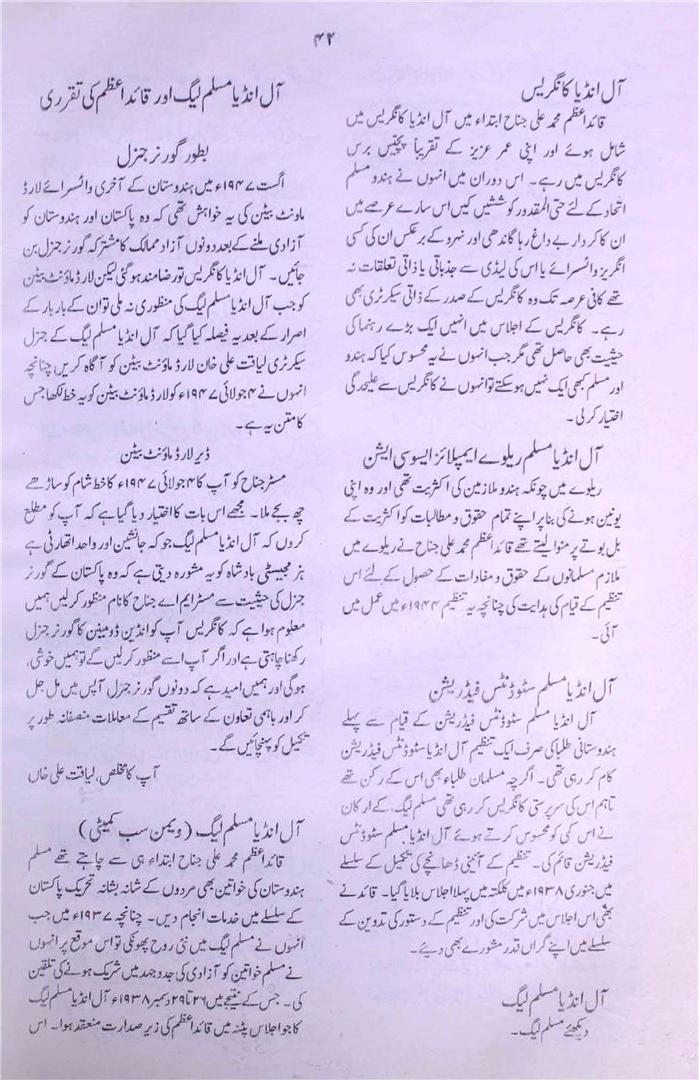 ۴۲
آل انڈیا کانگریس
قائداعظم محمد علی جناح ابتداء میں آل انڈیا کانگریس میں
شامل ہوئے اور اپنی عمر عزیز کے تقریباً پچیس برس
کانگریس میں رہے۔ اس دوران میں انہوں نے ہندو مسلم
اتحاد کے لئے حتی المقدور کوششیں کیں اس سارے عرصے میں
ان کا کردار بے داغ رہا گاندھی اور نہرو کے برعکس ان کی کسی
انگریز وائسرائے یا اس کی لیڈی سے جذباتی یا ذاتی تعلقات نہ
تھے کافی عرصہ تک وہ کانگریس کے صدر کے ذاتی سیکرٹری بھی
رہے۔ کانگریس کے اجلاس میں انہیں ایک بڑے رہنما کی
حیثیت بھی حاصل تھی مگر جب انہوں نے یہ محسوس کیا کہ ہندو
اور مسلم کبھی ایک نہیں ہو سکتے تو انہوں نے کانگریس سے علیحدگی
اختیار کر لی۔
آل انڈیا مسلم ریلوے ایمپلائز ایسوسی ایشن
ریلوے میں چونکہ ہندو ملازمین کی اکثریت تھی اور وہ اپنی
یونین ہونے کی بنا پر اپنے تمام حقوق و مطالبات کو اکثریت کے
بل بوتے پر منوا لیتے تھے قائداعظم محمد علی جناح نے ریلوے میں
ملازم مسلمانوں کے حقوق و مفادات کے حصول کے لئے اس
تنظیم کے قیام کی ہدایت کی چنانچہ یہ تنظیم ۱۹۴۴ء میں عمل میں
آئی۔
آل انڈیا مسلم سٹوڈنٹس فیڈریشن
آل انڈیا مسلم سٹوڈنٹس فیڈریشن کے قیام سے پہلے
ہندوستانی طلبا کی صرف ایک تنظیم آل انڈیا سٹوڈنٹس فیڈریشن
کام کر رہی تھی۔ اگرچہ مسلمان طلباء بھی اس کے رکن تھے
تاہم اس کی سرپرستی کانگریس کر رہی تھی مسلم لیگ کے ارکان
نے اس کمی کو محسوس کرتے ہوئے آل انڈیا مسلم سٹوڈنٹس
فیڈریشن قائم کی۔ تنظیم کے آئینی ڈھانچے کی تکمیل کے سلسلے
میں جنوری ۱۹۳۸ء میں کلکتہ میں پہلا اجلاس بلایا گیا۔ قائد نے
بھی اس اجلاس میں شرکت کی اور تنظیم کے دستور کی تدوین کے
سلسلے میں اپنے گراں قدر مشورے بھی دیئے۔
آل انڈیا مسلم لیگ
دیکھئے مسلم لیگ۔
آل انڈیا مسلم لیگ اور قائداعظم کی تقرری
بطور گورنر جنرل
اگست ۱۹۴۷ء میں ہندوستان کے آخری وائسرائے لارڈ
ماونٹ بیٹن کی یہ خواہش تھی کہ وہ پاکستان اور ہندوستان کو
آزادی ملنے کے بعد دونوں آزاد ممالک کا مشترکہ گورنر جنرل بن
جائیں۔ آل انڈیا کانگریس تو رضامند ہو گئی لیکن لارڈ ماؤنٹ بیٹن
کو جب آل انڈیا مسلم لیگ کی منظوری نہ ملی تو ان کے بار بار کے
اصرار کے بعد یہ فیصلہ کیا گیا کہ آل انڈیا مسلم لیگ کے جنرل
سیکرٹری لیاقت علی خان لارڈ ماؤنٹ بیٹن کو آگاہ کریں چنانچہ
انہوں نے ۴ جولائی ۱۹۴۷ء کو لارڈ ماؤنٹ بیٹن کو یہ خط لکھا جس
کا متن یہ ہے۔
ڈیر لارڈ ماؤنٹ بیٹن
مسٹر جناح کو آپ کا ۴ جولائی ۱۹۴۷ء کا خط شام کو ساڑھے
چھ بجے ملا۔ مجھے اس بات کا اختیار دیا گیا ہے کہ آپ کو مطلع
کروں کہ آل انڈیا مسلم لیگ جو کہ جانشین اور واحد اتھارٹی ہے
ہز میجیسٹی بادشاہ کو یہ مشورہ دیتی ہے کہ وہ پاکستان کے گورنر
جنرل کی حیثیت سے مسٹر ایم اے جناح کا نام منظور کر لیں ہمیں
معلوم ہوا ہے کہ کانگریس آپ کو انڈین ڈومینن کا گورنر جنرل
رکھنا چاہتی ہے اور اگر آپ اسے منظور کر لیں گے تو ہمیں خوشی
ہوگی اور ہمیں امید ہے کہ دونوں گورنر جنرل آپس میں مل جل
کر اور باہمی تعاون کے ساتھ تقسیم کے معاملات منصفانہ طور پر
تکمیل کو پہنچائیں گے۔
آپ کا مخلص، لیاقت علی خاں
آل انڈیا مسلم لیگ (ویمن سب کمیٹی)
قائداعظم محمد علی جناح ابتداء ہی سے چاہتے تھے مسلم
ہندوستان کی خواتین بھی مردوں کے شانہ بشانہ تحریک پاکستان
کے سلسلے میں خدمات انجام دیں۔ چنانچہ ۱۹۳۷ء میں جب
انہوں نے مسلم لیگ میں نئی روح پھونکی تو اس موقع پر انہوں
نے مسلم خواتین کو آزادی کی جدوجہد میں شریک ہونے کی تلقین
کی۔ جس کے نتیجے میں ۲۶ تا ۲۹ دسمبر ۱۹۳۸ء آل انڈیا مسلم لیگ
کا جو اجلاس پٹنہ میں قائداعظم کی زیر صدارت منعقد ہوا۔ اس